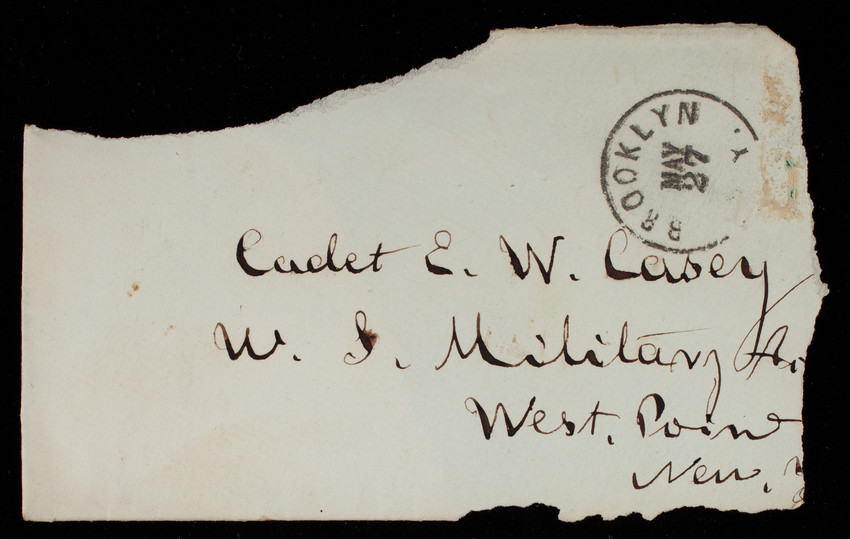 BROOKLYN Y
MAY
27
Cadet E. W. Casey
W. S. Military A
West. Point
New. Y